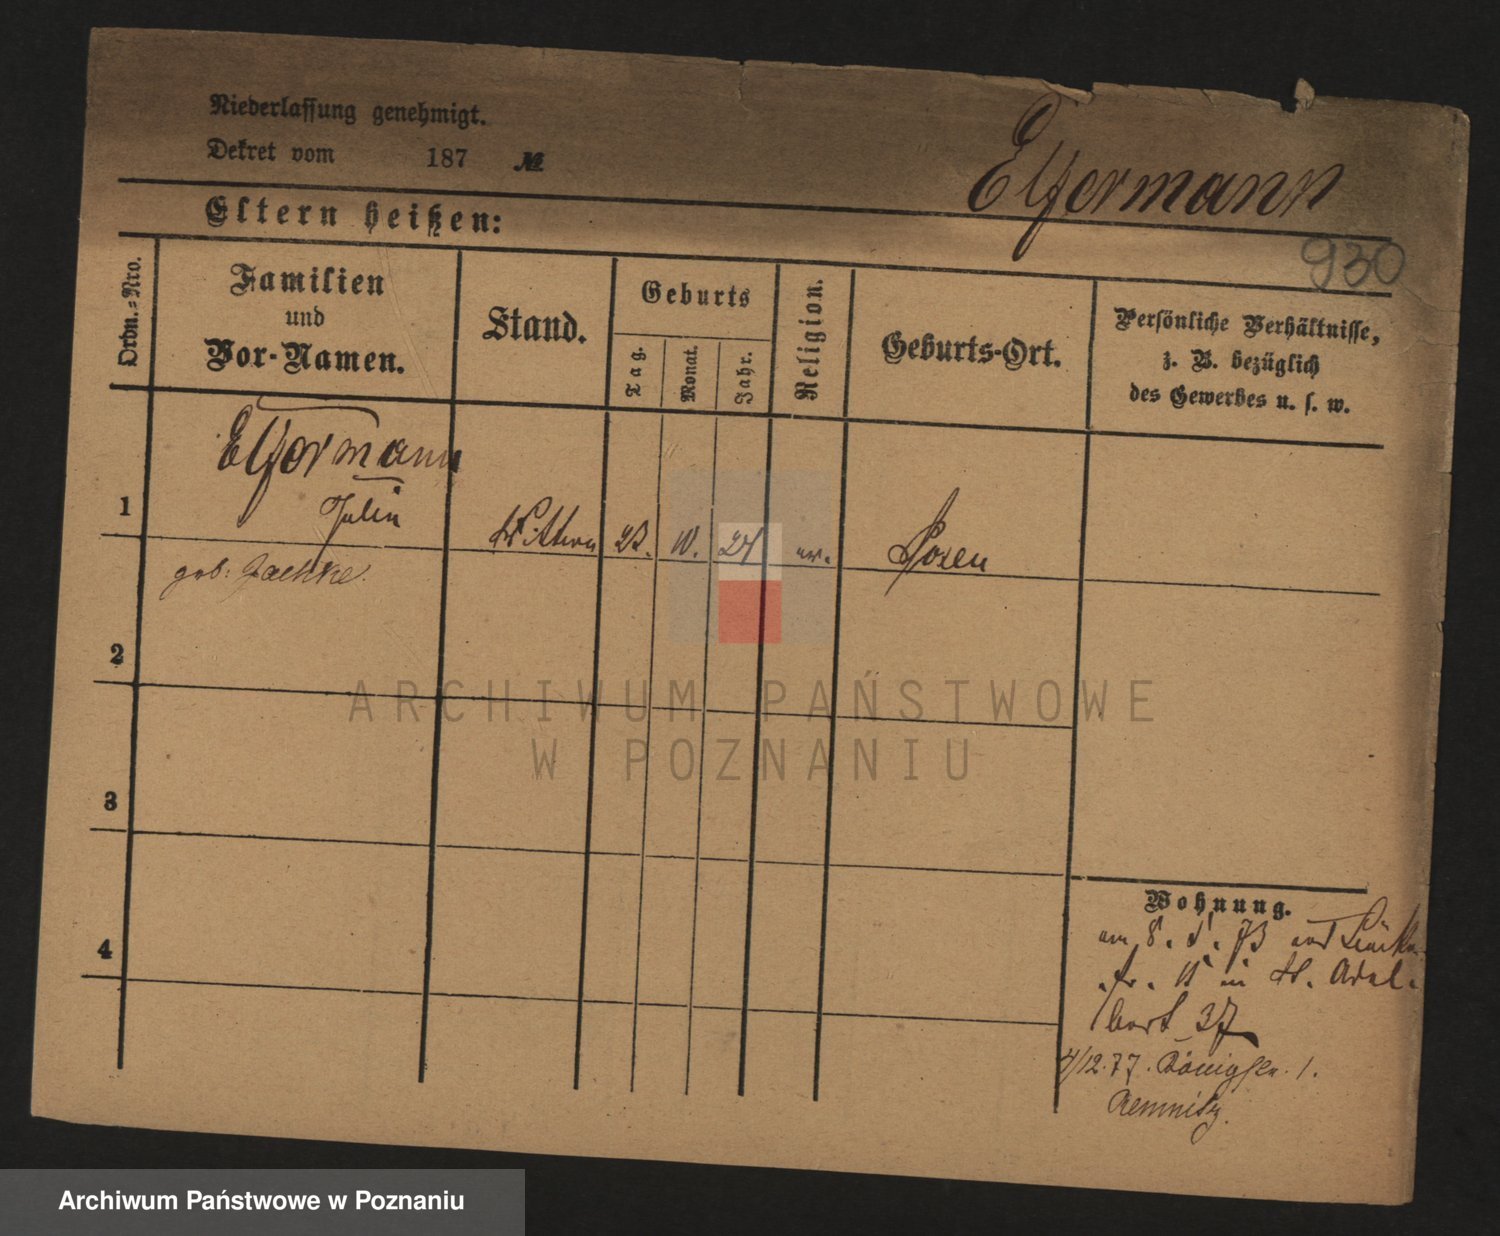 Niederlassung genehmigt.
Dekret vom 187 №
Elfermann
Eltern heißen:
930
Ordn.-Nro.
Familien
und
Vor-Namen.
Stand.
Geburts
Tag.
Monat.
Jahr.
Religion.
Geburts-Ort.
Persönliche Verhältnisse,
z. B. bezüglich
des Gewerbes u. s. w.
Elfermann
1 Julia Wittwe 23. 10. 24 ev. Posen
geb.
2
3
4
Wohnung.
am 8. 5. 73
in St. Adal-
bert 37
4/12.77. Königstr. 1.
ARCHIWUM PAŃSTWOWE
W POZNANIU
Archiwum Państwowe w Poznaniu